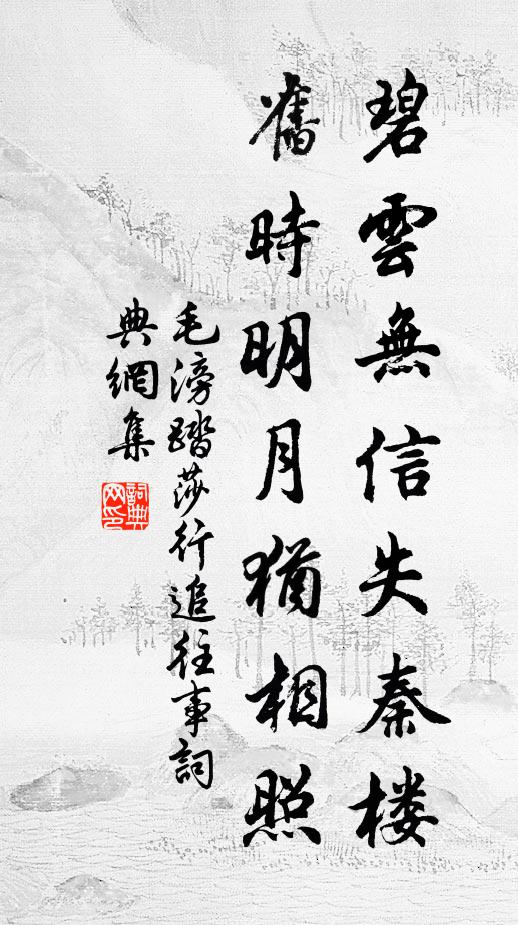 碧雲無信失秦楼
舊時明月猶相照
毛滂踏莎行追往事詞
典網集
詞典網印